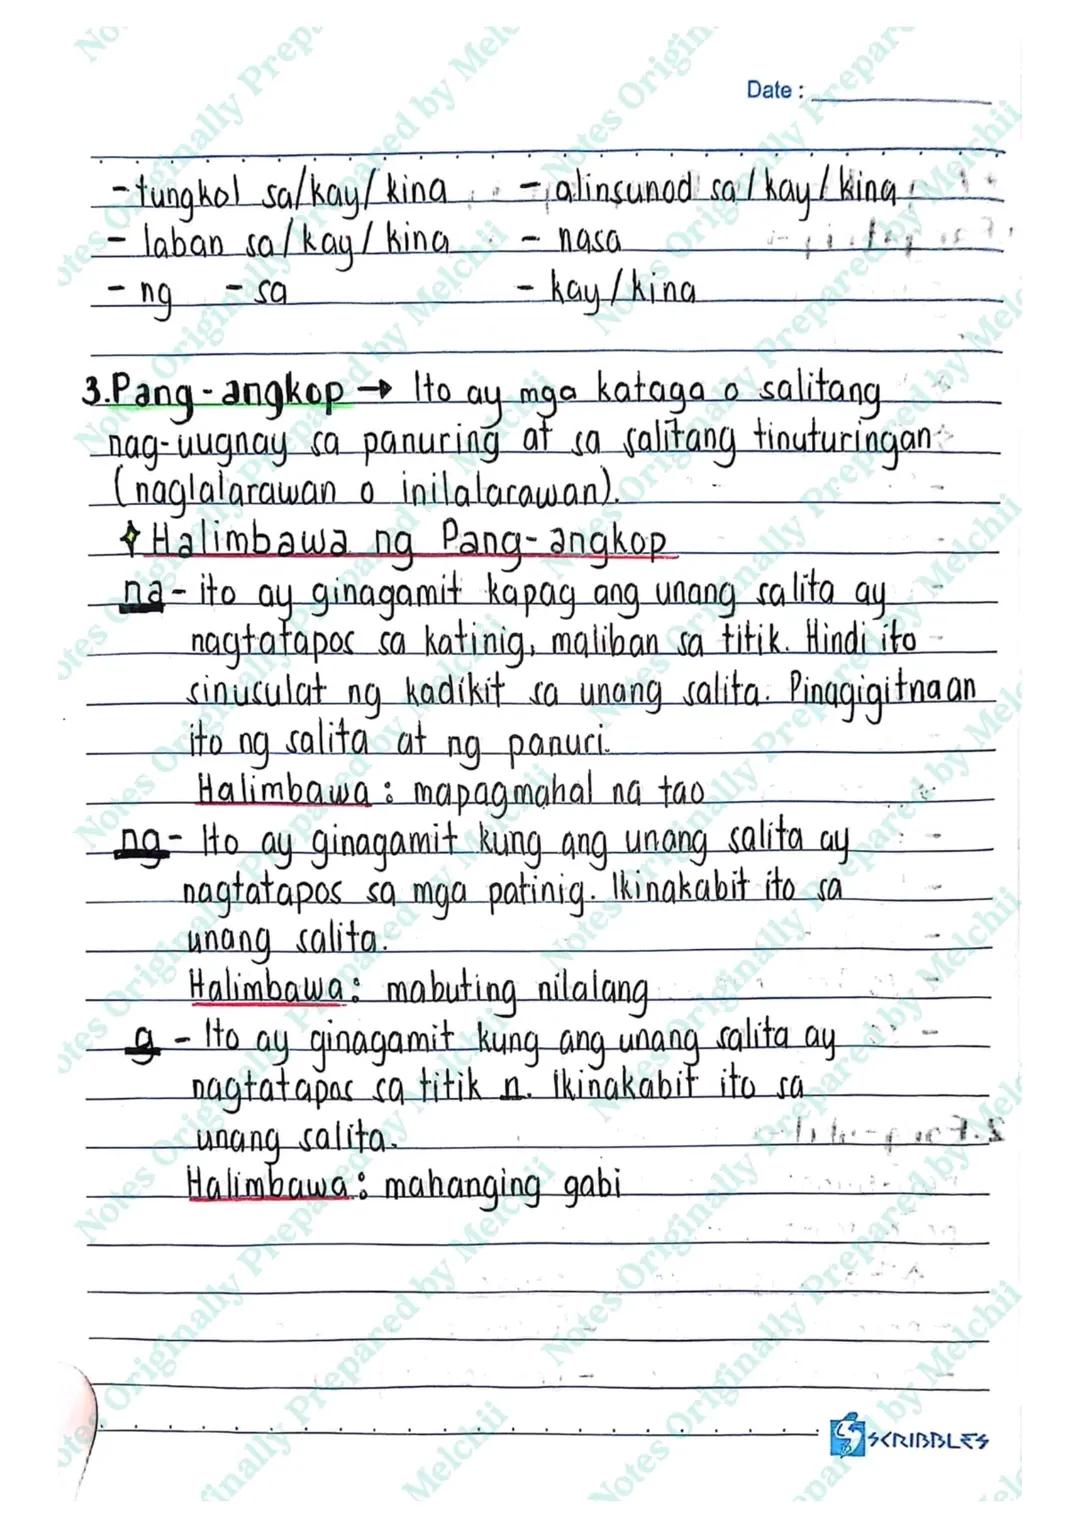 Date :
- tungkol sa/kay/kina - alinsunod sa/kay/kina
- laban sa/kay/kina - nasa
- ng - sa - kay/kina
3.Pang-angkop → Ito ay mga kataga o salitang
nag-uugnay sa panuring at sa salitang tinuturingan
(naglalarawan o inilalarawan).
Halimbawa ng Pang-angkop
na - ito ay ginagamit kapag ang unang salita ay
nagtatapos sa katinig, maliban sa titik. Hindi ito
sinusulat ng kadikit sa unang salita. Pinagigitnaan
ito ng salita at ng panuri.
Halimbawa : mapagmahal na tao
ng - Ito ay ginagamit kung ang unang salita ay
nagtatapos sa mga patinig. Ikinakabit ito sa
unang salita.
Halimbawa : mabuting nilalang
g - Ito ay ginagamit kung ang unang salita ay
nagtatapos sa titik n. Ikinakabit ito sa
unang salita.
Halimbawa : mahanging gabi
SCRIBBLES
Notes Originally Prepared by Melchii